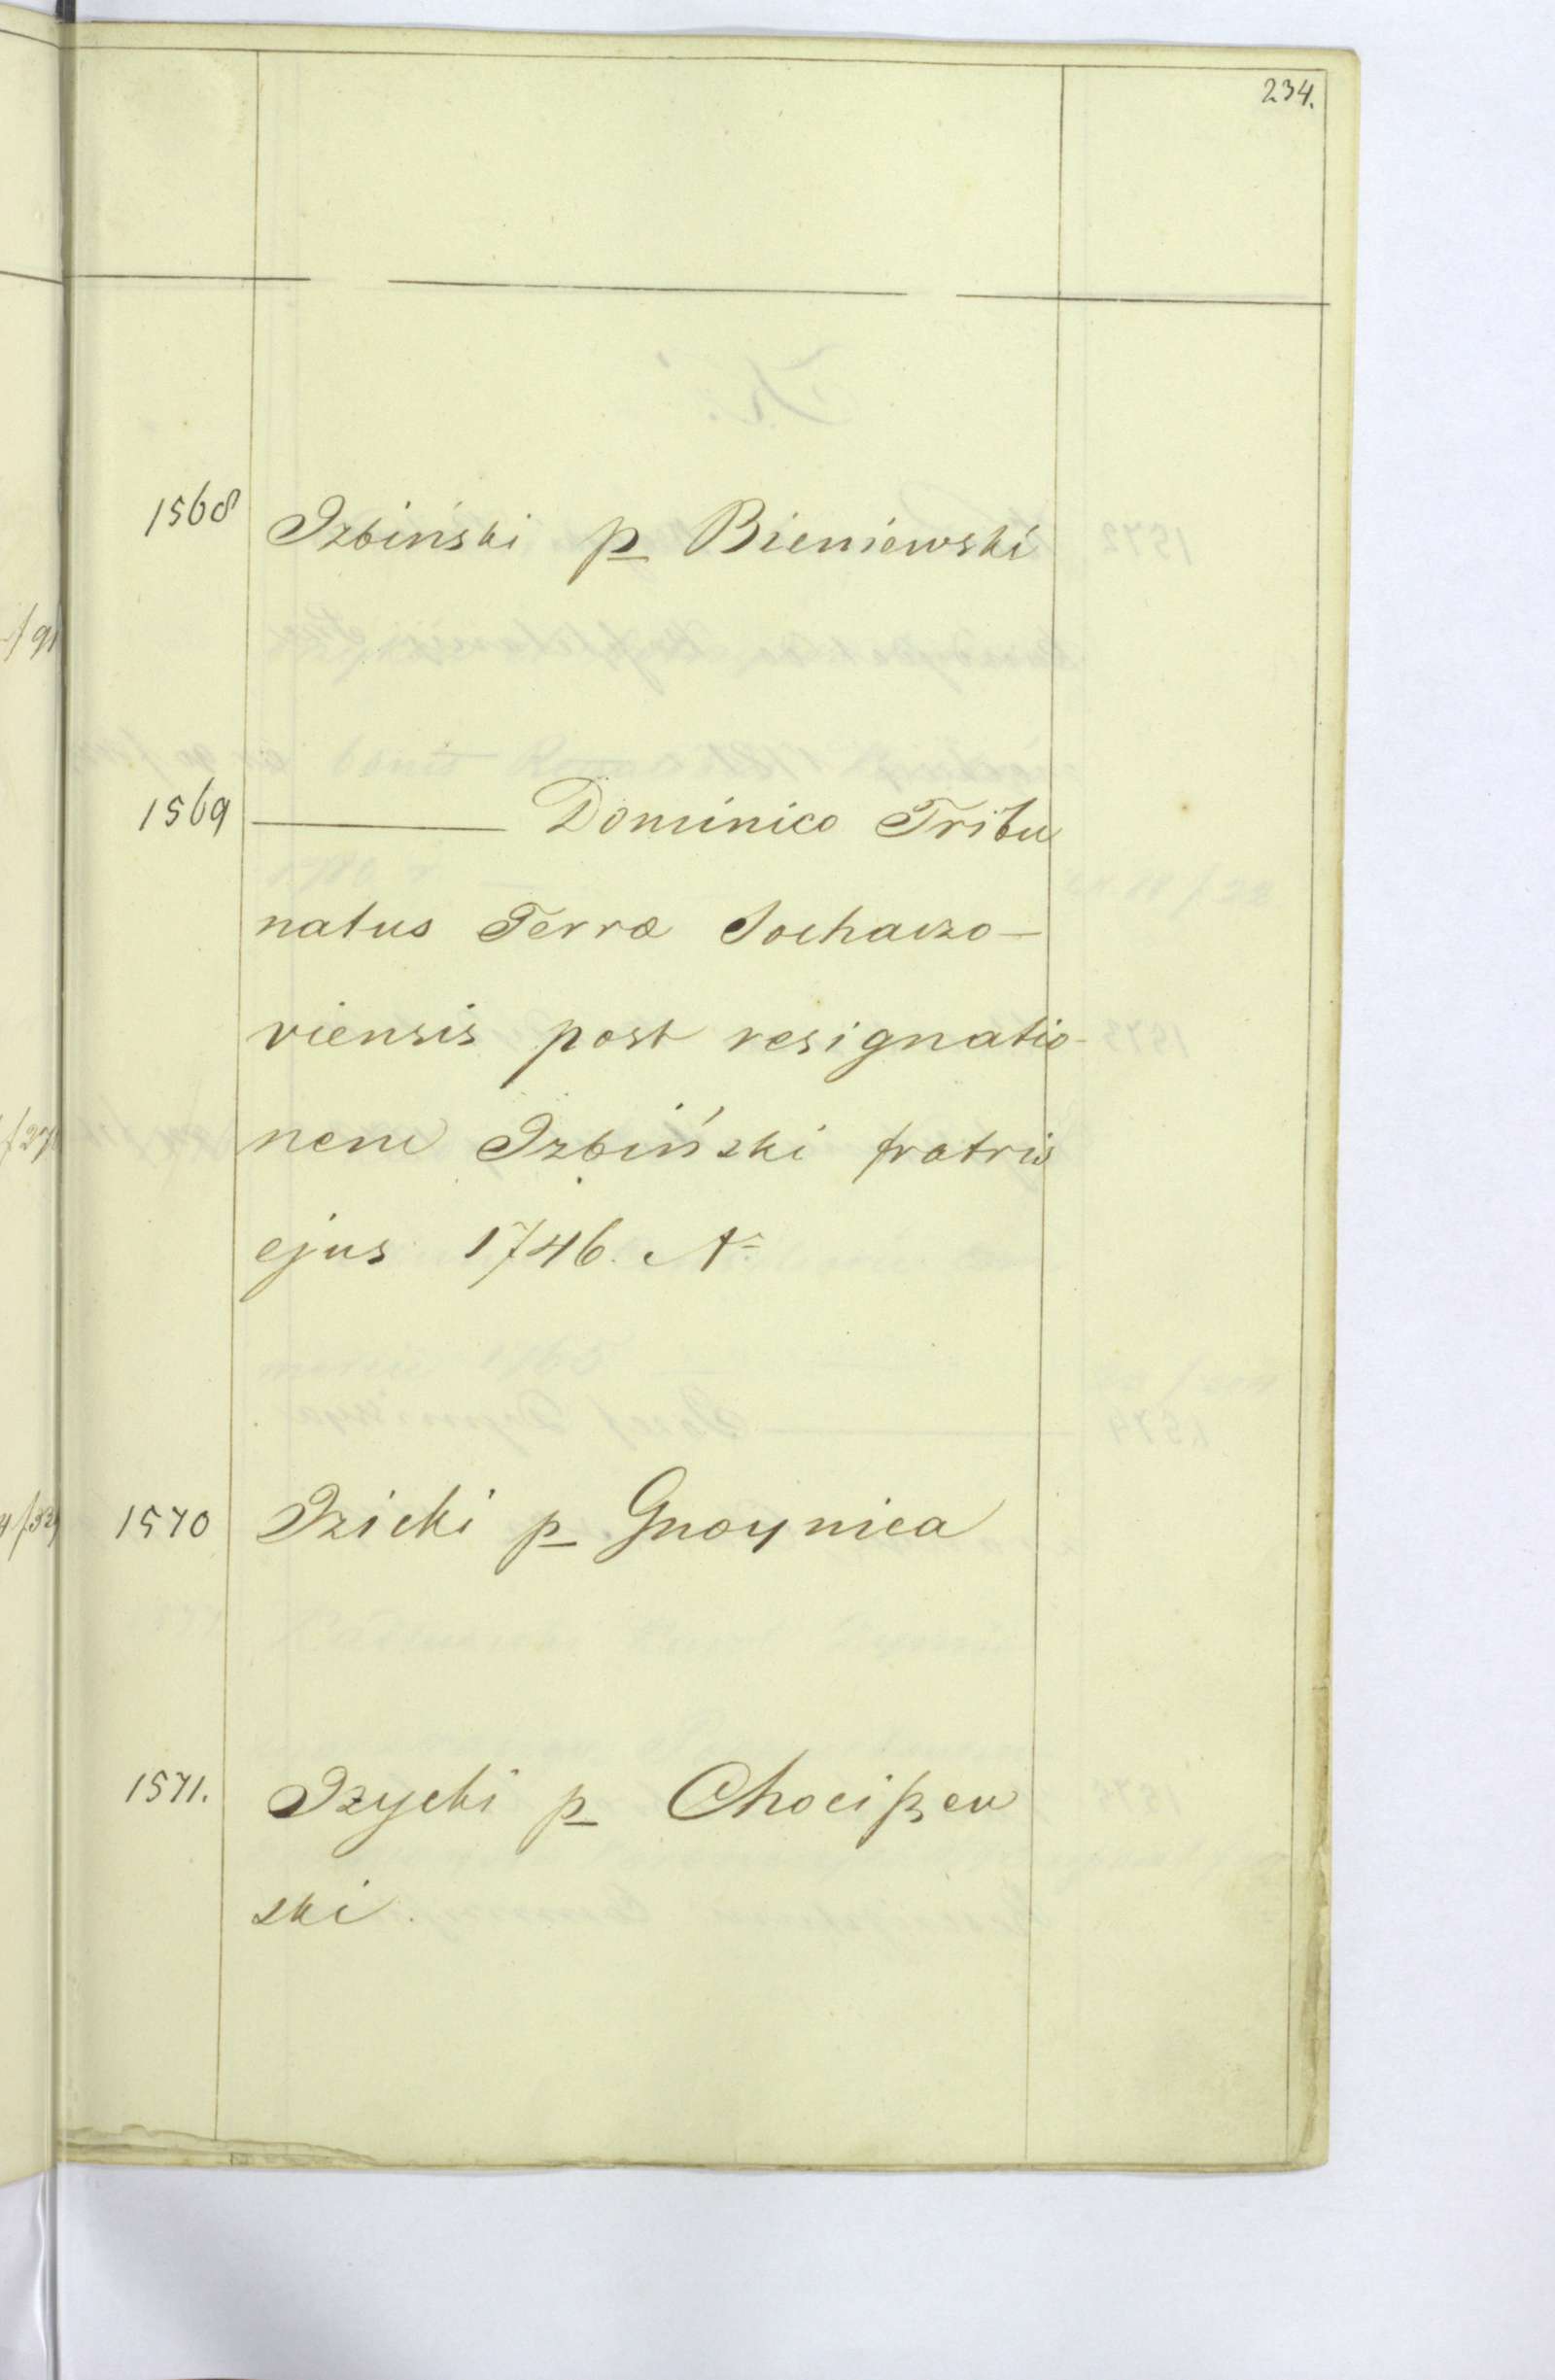 234.
1568 Izbiński p Bieniewski
1569 — Dominico Tribu
natus Terræ Sochaczo—
viensis post resignatio-
nem Izbiński fratris
ejus 1746. A
1570 Izicki p Gnoynica
1571. Izycki p Chocißew
ski.